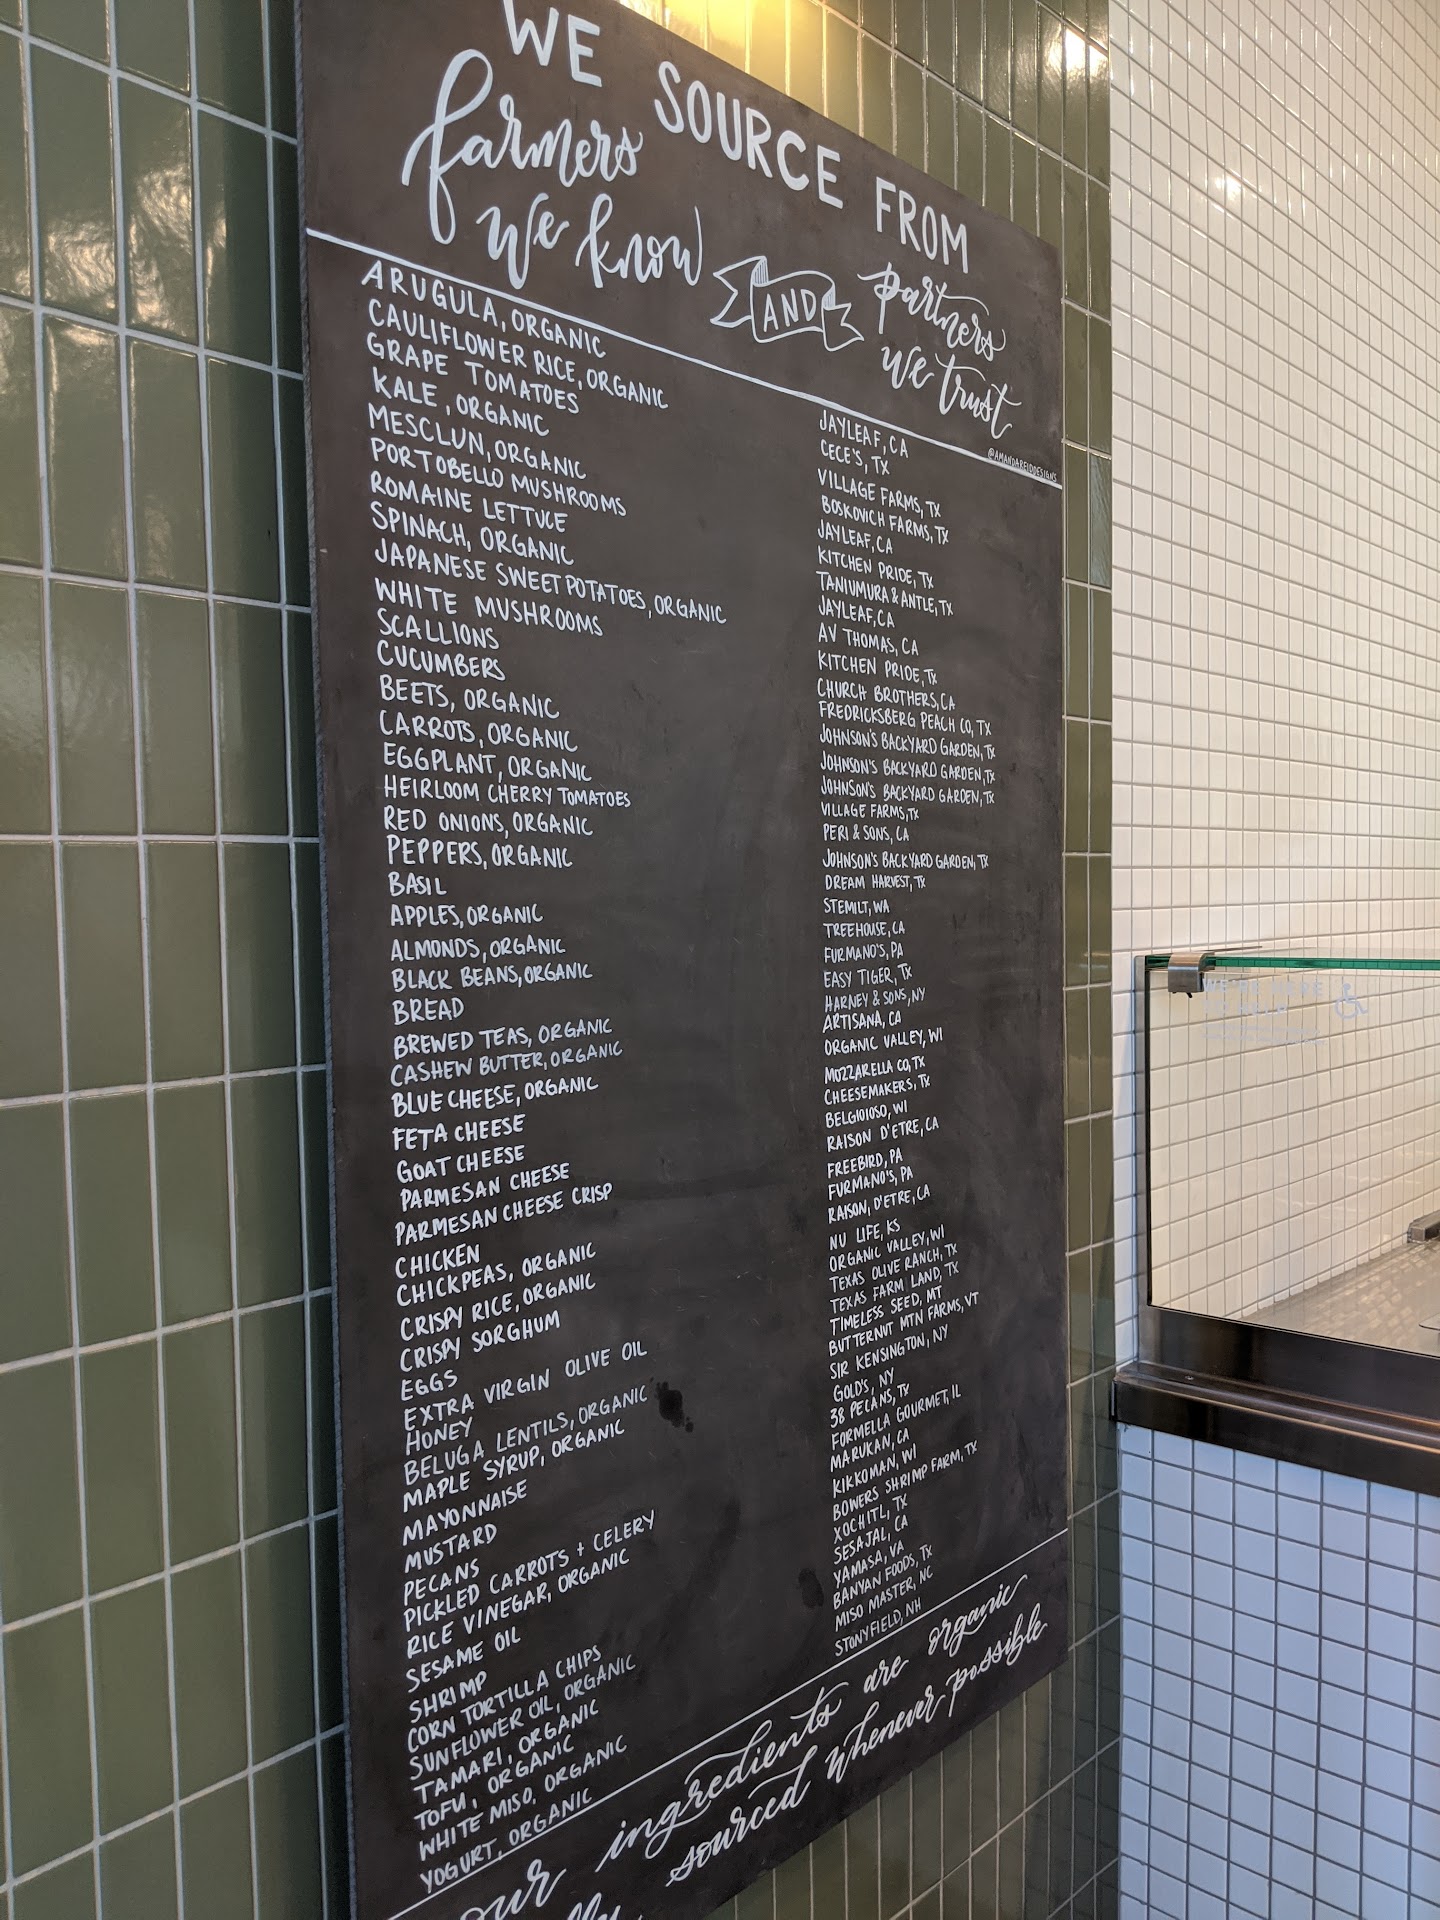 WE SOURCE FROM
farmers
we know
AND
partners
we trust
@AMANDAREIDDESIGNS
ARUGULA, ORGANIC
CAULIFLOWER RICE, ORGANIC
GRAPE TOMATOES
KALE, ORGANIC
MESCLUN, ORGANIC
PORTOBELLO MUSHROOMS
ROMAINE LETTUCE
SPINACH, ORGANIC
JAPANESE SWEET POTATOES, ORGANIC
WHITE MUSHROOMS
SCALLIONS
CUCUMBERS
BEETS, ORGANIC
CARROTS, ORGANIC
EGGPLANT, ORGANIC
HEIRLOOM CHERRY TOMATOES
RED ONIONS, ORGANIC
PEPPERS, ORGANIC
BASIL
APPLES, ORGANIC
ALMONDS, ORGANIC
BLACK BEANS, ORGANIC
BREAD
BREWED TEAS, ORGANIC
CASHEW BUTTER, ORGANIC
BLUE CHEESE, ORGANIC
FETA CHEESE
GOAT CHEESE
PARMESAN CHEESE
PARMESAN CHEESE CRISP
CHICKEN
CHICKPEAS, ORGANIC
CRISPY RICE, ORGANIC
CRISPY SORGHUM
EGGS
EXTRA VIRGIN OLIVE OIL
HONEY
BELUGA LENTILS, ORGANIC
MAPLE SYRUP, ORGANIC
MAYONNAISE
MUSTARD
PECANS
PICKLED CARROTS + CELERY
RICE VINEGAR, ORGANIC
SESAME OIL
SHRIMP
CORN TORTILLA CHIPS
SUNFLOWER OIL, ORGANIC
TAMARI, ORGANIC
TOFU, ORGANIC
WHITE MISO, ORGANIC
YOGURT, ORGANIC
JAYLEAF, CA
CECE'S, TX
VILLAGE FARMS, TX
BOSKOVICH FARMS, TX
JAYLEAF, CA
KITCHEN PRIDE, TX
TANIUMURA & ANTLE, TX
JAYLEAF, CA
AV THOMAS, CA
KITCHEN PRIDE, TX
CHURCH BROTHERS, CA
FREDRICKSBERG PEACH CO, TX
JOHNSON'S BACKYARD GARDEN, TX
JOHNSON'S BACKYARD GARDEN, TX
JOHNSON'S BACKYARD GARDEN, TX
VILLAGE FARMS, TX
PERI & SONS, CA
JOHNSON'S BACKYARD GARDEN, TX
DREAM HARVEST, TX
STEMILT, WA
TREEHOUSE, CA
FURMANO'S, PA
EASY TIGER, TX
HARNEY & SONS, NY
ARTISANA, CA
ORGANIC VALLEY, WI
MOZZARELLA CO, TX
CHEESEMAKERS, TX
BELGIOIOSO, WI
RAISON D'ETRE, CA
FREEBIRD, PA
FURMANO'S, PA
RAISON, D'ETRE, CA
NU LIFE, KS
ORGANIC VALLEY, WI
TEXAS OLIVE RANCH, TX
TEXAS FARM LAND, TX
TIMELESS SEED, MT
BUTTERNUT MTN FARMS, VT
SIR KENSINGTON, NY
GOLD'S, NY
38 PECANS, TX
FORMELLA GOURMET, IL
MARUKAN, CA
KIKKOMAN, WI
BOWERS SHRIMP FARM, TX
XOCHITL, TX
SESAJAL, CA
YAMASA, VA
BANYAN FOODS, TX
MISO MASTER, NC
STONYFIELD, NH
our ingredients are organic
sourced whenever possible
WE'RE HERE